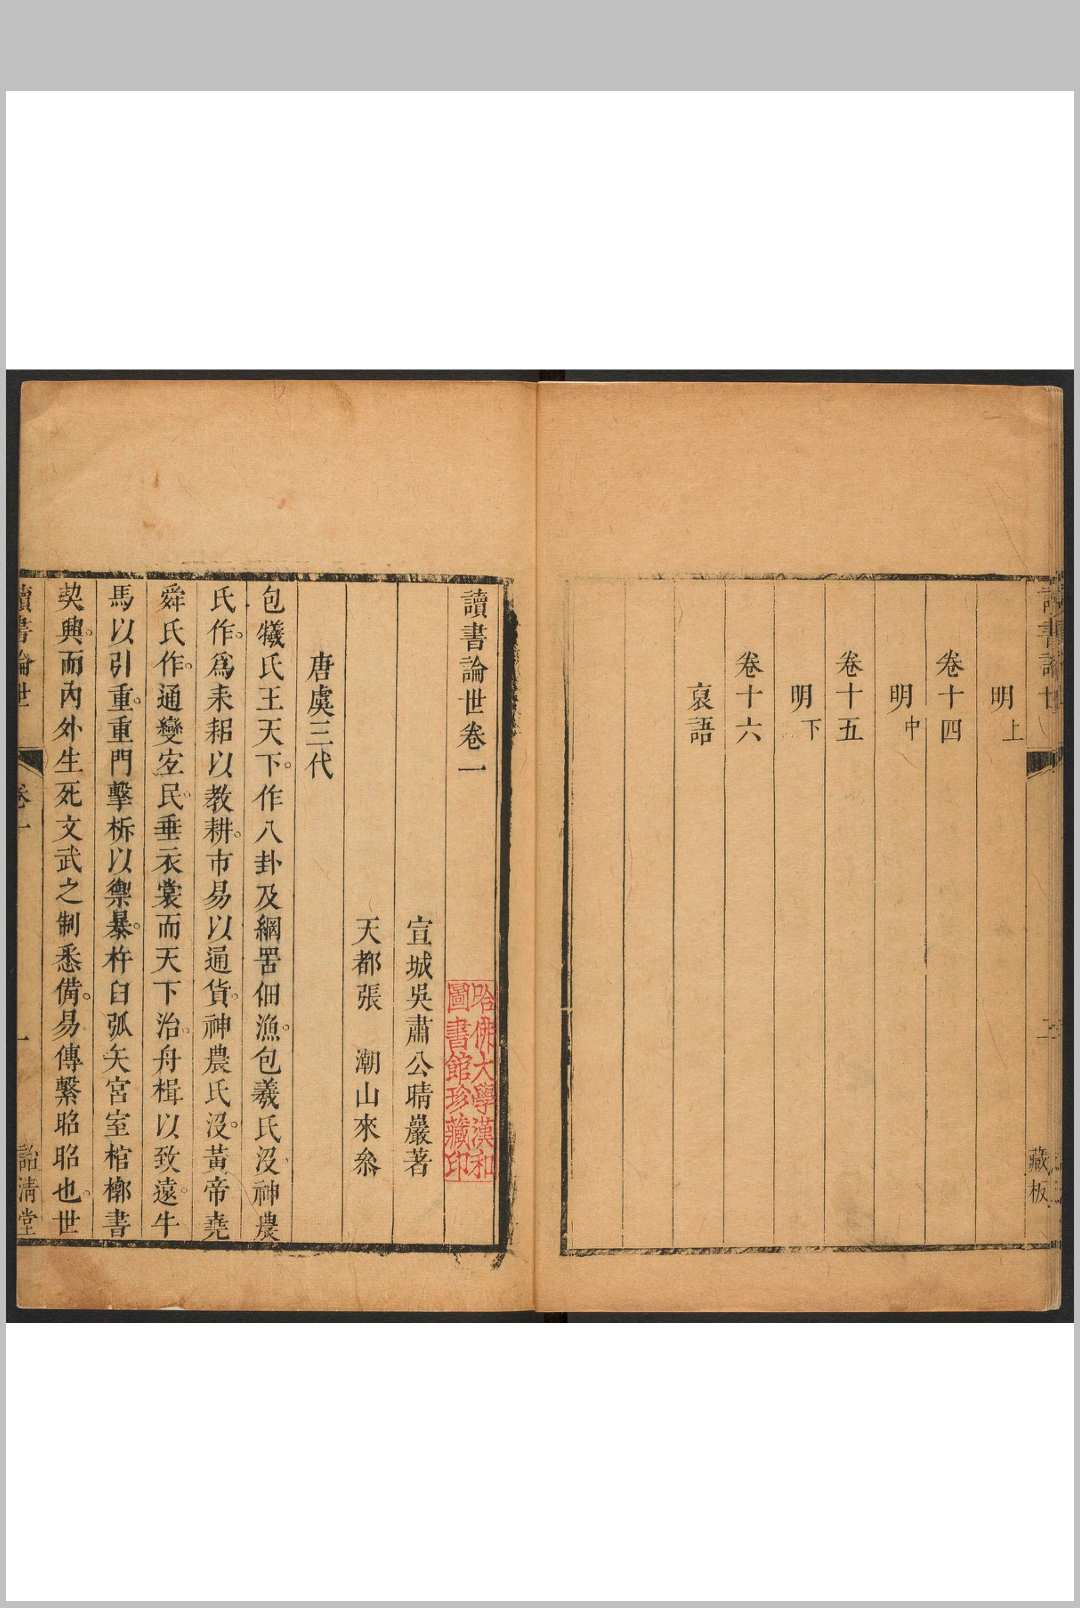 明上
卷十四
明中
卷十五
明下
卷十六
哀語
藏板
讀書論世卷一
哈佛大學漢和
圖書館珍藏印
宣城吳肅公晴巖著
天都張　潮山來叅
唐虞三代
包犧氏王天下。作八卦及網罟佃漁。包羲氏沒神農
氏作。爲耒耜以教耕。市易以通貨。神農氏沒。黃帝堯
舜氏作。通變宜民。垂衣裳而天下治。舟楫以致遠。牛
馬以引重。重門擊柝以禦暴。杵臼弧矢宮室棺槨書
契興。而內外生死文武之制悉備。易傳繫昭昭也。世
讀書論世
卷一
一
詒清堂